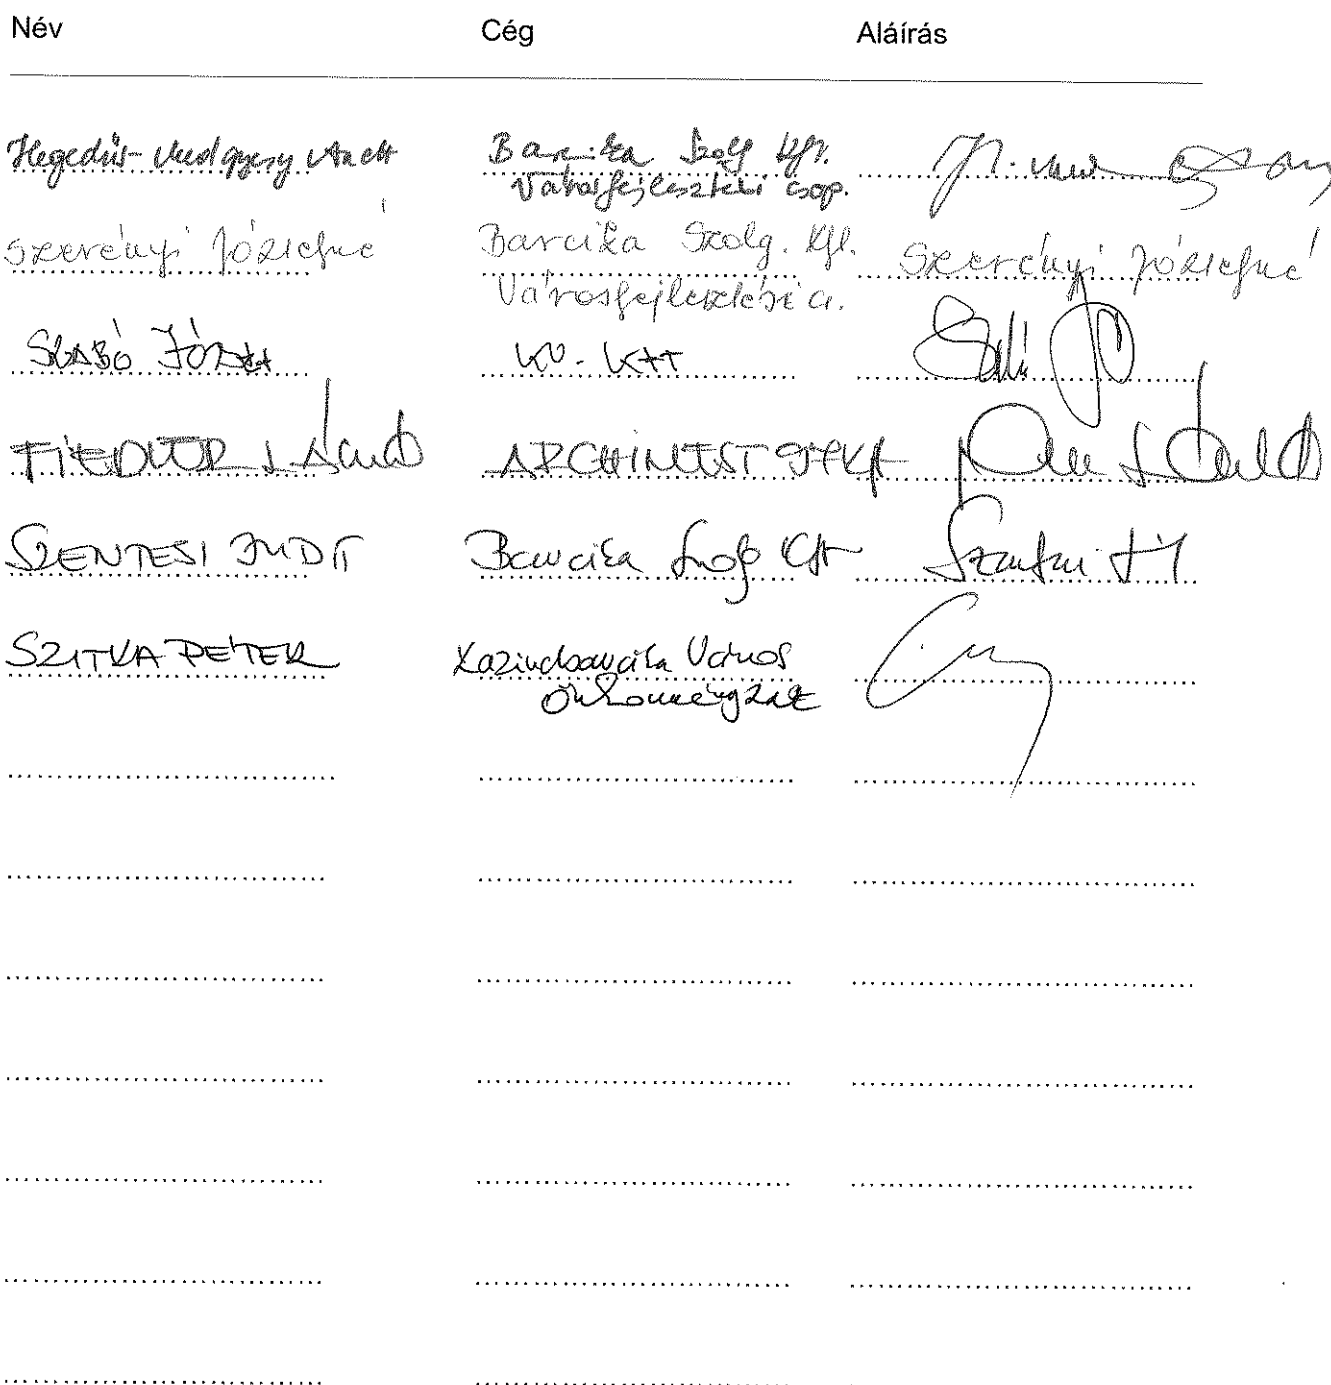 Név Cég Aláírás
Hegedűs- Anett Barcika Szolg Kft.
Városfejlesztési csop.
Szerényi Józsefné Barcika Szolg. Kft. Szerényi Józsefné
Városfejlesztési a.
SZABÓ JÓZSEF
FIEDLER LÁSZLÓ ARCHINVEST
SZENTESI JUDIT Barcika Szolg Kft Szentesi
SZITKA PÉTER Kazincbarcika Város
Önkormányzat